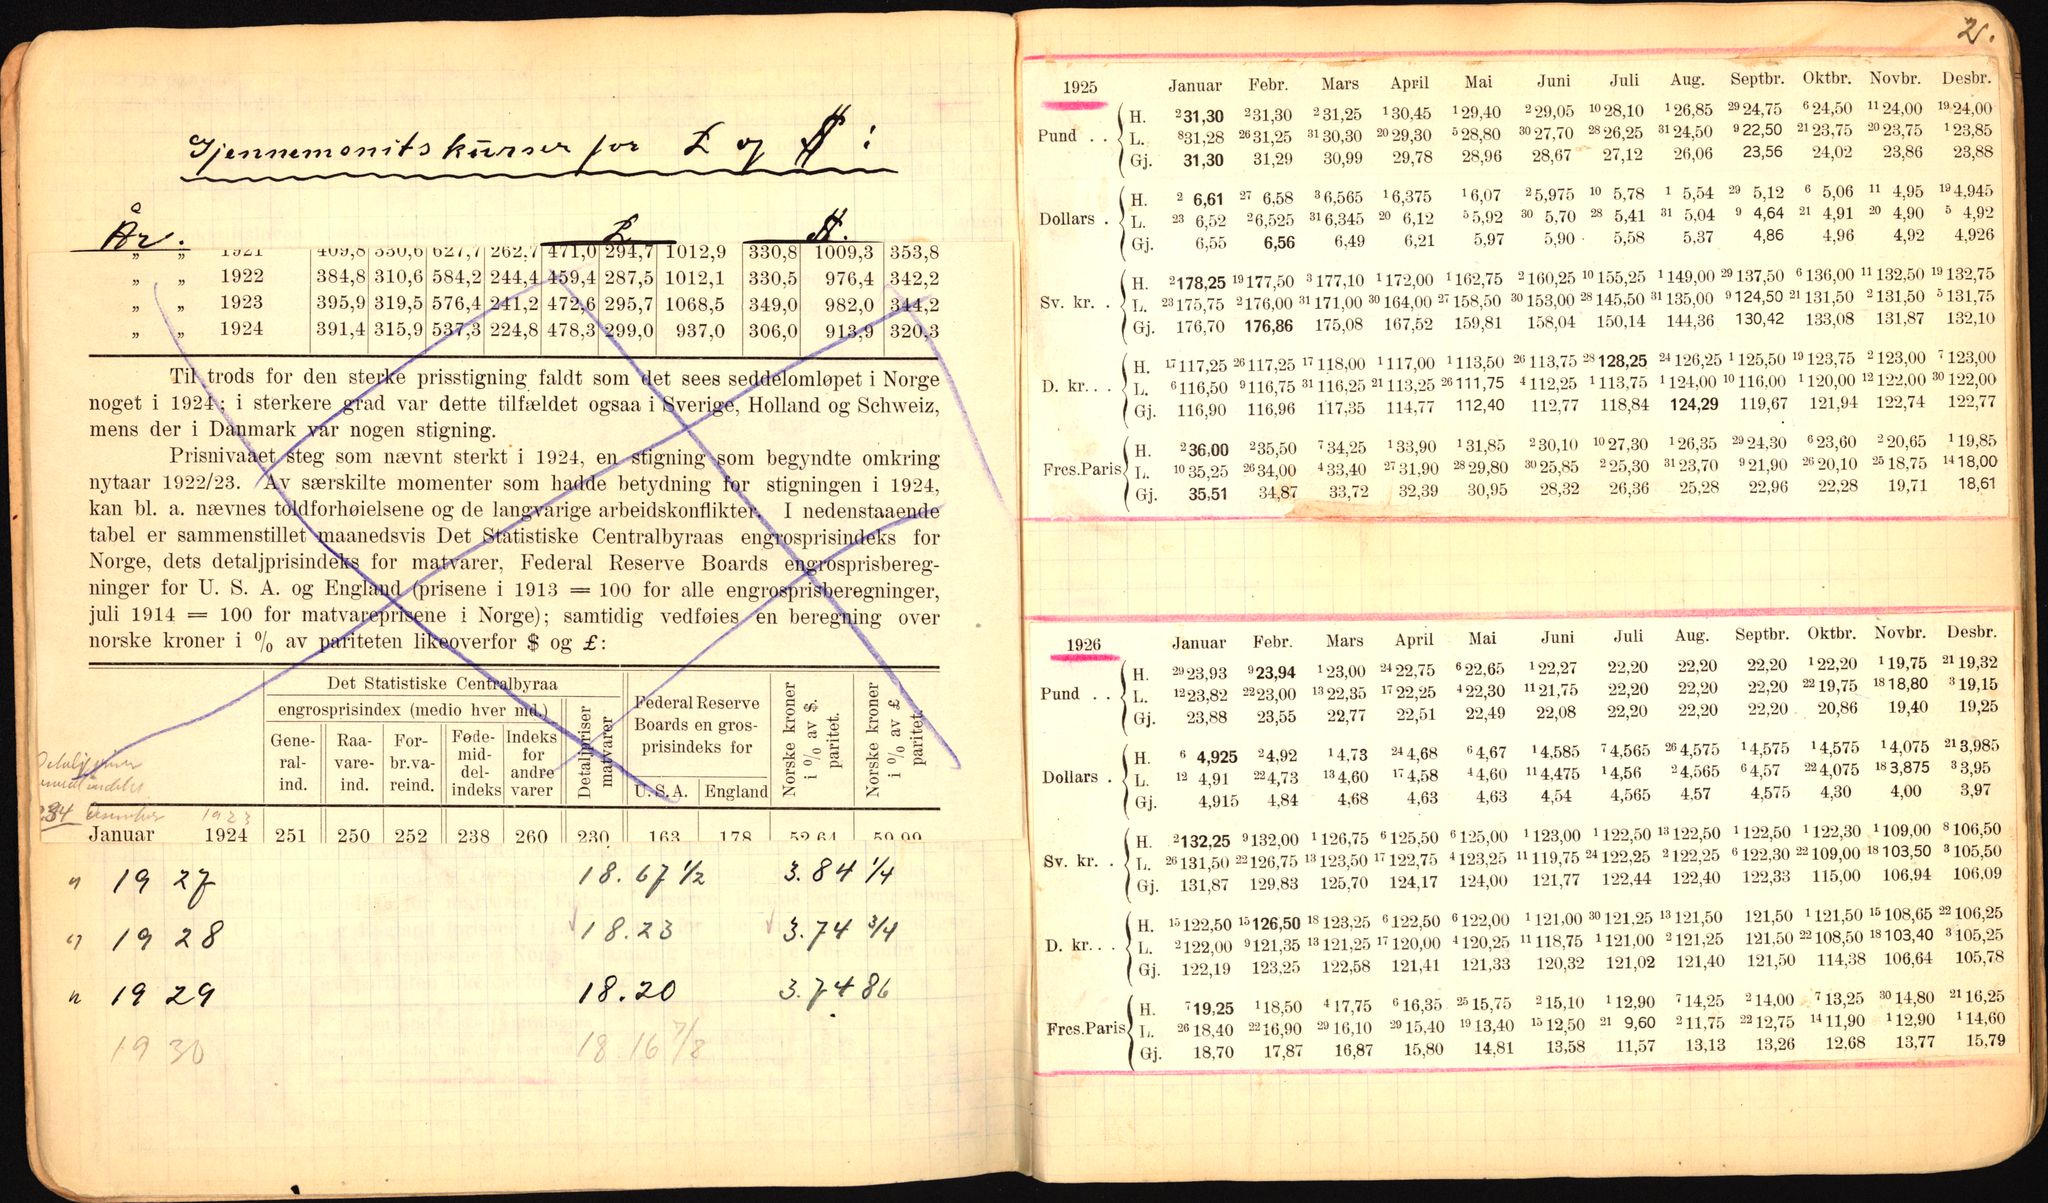 Gjennemsnitskurser for £ og $:
År. £ $.
„ „ 1921 409,8 330,6 627,7 262,7 471,0 294,7 1012,9 330,8 1009,3 353,8
„ „ 1922 384,8 310,6 584,2 244,4 459,4 287,5 1012,1 330,5 976,4 342,2
„ „ 1923 395,9 319,5 576,4 241,2 472,6 295,7 1068,5 349,0 982,0 344,2
„ „ 1924 391,4 315,9 537,3 224,8 478,3 299,0 937,0 306,0 913,9 320,3
Til trods for den sterke prisstigning faldt som det sees seddelomløpet i Norge
noget i 1924; i sterkere grad var dette tilfældet ogsaa i Sverige, Holland og Schweiz,
mens der i Danmark var nogen stigning.
Prisnivaaet steg som nævnt sterkt i 1924, en stigning som begyndte omkring
nytaar 1922/23. Av særskilte momenter som hadde betydning for stigningen i 1924,
kan bl. a. nævnes toldforhøielsene og de langvarige arbeidskonflikter. I nedenstaaende
tabel er sammenstillet maanedsvis Det Statistiske Centralbyraas engrosprisindeks for
Norge, dets detaljprisindeks for matvarer, Federal Reserve Boards engrosprisbereg-
ninger for U. S. A. og England (prisene i 1913 = 100 for alle engrosprisberegninger,
juli 1914 = 100 for matvareprisene i Norge); samtidig vedføies en beregning over
norske kroner i % av pariteten likeoverfor $ og £:
Det Statistiske Centralbyraa
engrosprisindex (medio hver md.)
Gene-
ral-
ind.
Raa-
vare-
ind.
For-
br.va-
reind.
Føde-
mid-
del-
indeks
Indeks
for
andre
varer
Detaljpriser
matvarer
Federal Reserve
Boards en gros-
prisindeks for
U. S. A. England
Norske kroner
i % av $.
paritet.
Norske kroner
i % av £
paritet.
234 desember 1923
Januar 1924 251 250 252 238 260 230 163 178 52,64 59,99
„ 1927 18.67 1/2 3.84 1/4
„ 1928 18.23 3.74 3/4
„ 1929 18.20 3.7486
1930 18 16 7/8
2.
1925 Januar Febr. Mars April Mai Juni Juli Aug. Septbr. Oktbr. Novbr. Desbr.
Pund . .
H. ²31,30 ²31,30 ²31,25 ¹30,45 ¹29,40 ²29,05 ¹⁰28,10 ¹26,85 ²⁹24,75 ⁶24,50 ¹¹24,00 ¹⁹24,00
L. ⁸31,28 ²⁶31,25 ³¹30,30 ²⁰29,30 ⁵28,80 ³⁰27,70 ²⁸26,25 ³¹24,50 ⁹22,50 ²¹23,75 ²⁰23,75 ¹23,85
Gj. 31,30 31,29 30,99 29,78 28,96 28,67 27,12 26,06 23,56 24,02 23,86 23,88
Dollars .
H. ² 6,61 ²⁷ 6,58 ³6,565 ¹6,375 ¹6,07 ²5,975 ¹⁰ 5,78 ¹ 5,54 ²⁹ 5,12 ⁶ 5,06 ¹¹ 4,95 ¹⁹4,945
L. ²³ 6,52 ²6,525 ³¹6,345 ²⁰ 6,12 ⁵5,92 ³⁰ 5,70 ²⁸ 5,41 ³¹ 5,04 ⁹ 4,64 ²¹ 4,91 ²⁰ 4,90 ⁵ 4,92
Gj. 6,55 6,56 6,49 6,21 5,97 5,90 5,58 5,37 4,86 4,96 4,92 4,926
Sv. kr. .
H. ²178,25 ¹⁹177,50 ³177,10 ¹172,00 ¹162,75 ²160,25 ¹⁰155,25 ¹149,00 ²⁹137,50 ⁶136,00 ¹¹132,50 ¹⁹132,75
L. ²³175,75 ²176,00 ³¹171,00 ³⁰164,00 ²⁷158,50 ³⁰153,00 ²⁸145,50 ³¹135,00 ⁹124,50 ²¹131,50 ²131,50 ⁵131,75
Gj. 176,70 176,86 175,08 167,52 159,81 158,04 150,14 144,36 130,42 133,08 131,87 132,10
D. kr. . .
H. ¹⁷117,25 ²⁶117,25 ¹⁷118,00 ¹117,00 ¹113,50 ²⁶113,75 ²⁸128,25 ²⁴126,25 ¹125,50 ¹⁹123,75 ²123,00 ⁷123,00
L. ⁶116,50 ⁹116,75 ³¹116,25 ²¹113,25 ²⁶111,75 ⁴112,25 ¹113,75 ¹124,00 ¹⁰116,00 ¹120,00 ¹²122,00 ³⁰122,00
Gj. 116,90 116,96 117,35 114,77 112,40 112,77 118,84 124,29 119,67 121,94 122,74 122,77
Frcs.Paris
H. ²36,00 ²35,50 ⁷34,25 ¹33,90 ¹31,85 ²30,10 ¹⁰27,30 ¹26,35 ²⁹24,30 ⁶23,60 ²20,65 ¹19,85
L. ¹⁰35,25 ²⁶34,00 ⁴33,40 ²⁷31,90 ²⁸29,80 ³⁰25,85 ²25,30 ³¹23,70 ⁹21,90 ²⁶20,10 ²⁵18,75 ¹⁴18,00
Gj. 35,51 34,87 33,72 32,39 30,95 28,32 26,36 25,28 22,96 22,28 19,71 18,61
1926 Januar Febr. Mars April Mai Juni Juli Aug. Septbr. Oktbr. Novbr. Desbr.
Pund . .
H. ²⁹23,93 ⁹23,94 ¹23,00 ²⁴22,75 ⁶22,65 ¹22,27 22,20 22,20 22,20 ¹22,20 ¹19,75 ²¹19,32
L. ¹²23,82 ²²23,00 ¹³22,35 ¹⁷22,25 ⁴22,30 ¹¹21,75 22,20 22,20 22,20 ²²19,75 ¹⁸18,80 ³19,15
Gj. 23,88 23,55 22,77 22,51 22,49 22,08 22,20 22,20 22,20 20,86 19,40 19,25
Dollars .
H. ⁶ 4,925 ²4,92 ¹4,73 ²⁴4,68 ⁶4,67 ¹4,585 ⁷4,565 ²⁶4,575 ¹4,575 ¹4,575 ¹4,075 ²¹3,985
L. ¹² 4,91 ²²4,73 ¹³4,60 ¹⁷4,58 ⁴4,60 ¹¹4,475 ¹4,56 ²4,565 ⁶4,57 ²²4,075 ¹⁸3,875 ³3,95
Gj. 4,915 4,84 4,68 4,63 4,63 4,54 4,565 4,57 4,575 4,30 4,00 3,97
Sv. kr. .
H. ²132,25 ⁹132,00 ¹126,75 ⁶125,50 ⁶125,00 ¹123,00 ¹122,50 ¹³122,50 ¹122,50 ¹122,30 ¹109,00 ⁸106,50
L. ²⁶131,50 ²²126,75 ¹³123,50 ¹⁷122,75 ⁴123,25 ¹¹119,75 ²⁴122,25 ²122,25 ⁶122,30 ²²109,00 ¹⁸103,50 ³105,50
Gj. 131,87 129,83 125,70 124,17 124,00 121,77 122,44 122,40 122,33 115,00 106,94 106,09
D. kr. . .
H. ¹⁵122,50 ¹⁵126,50 ¹⁸123,25 ⁶122,50 ⁶122,00 ¹121,00 ³⁰121,25 ¹³121,50 121,50 ¹121,50 ¹⁵108,65 ²²106,25
L. ²122,00 ⁹121,35 ¹³121,25 ¹⁷120,00 ⁴120,25 ¹¹118,75 ¹121,00 ²121,25 121,50 ²²108,50 ¹⁸103,40 ³105,25
Gj. 122,19 123,25 122,58 121,41 121,33 120,32 121,02 121,40 121,50 114,38 106,64 105,78
Frcs.Paris
H. ⁷19,25 ¹18,50 ⁴17,75 ⁶16,35 ²⁵15,75 ²15,10 ¹12,90 ⁷14,25 ²14,00 ⁷13,25 ³⁰14,80 ²¹16,25
L. ²⁶18,40 ²²16,90 ²⁹16,10 ²⁹15,40 ¹⁹13,40 ¹⁵12,50 ²¹ 9,60 ²11,75 ²²12,75 ¹⁴11,90 ¹12,90 ¹14,60
Gj. 18,70 17,87 16,87 15,80 14,81 13,58 11,57 13,13 13,26 12,68 13,77 15,79